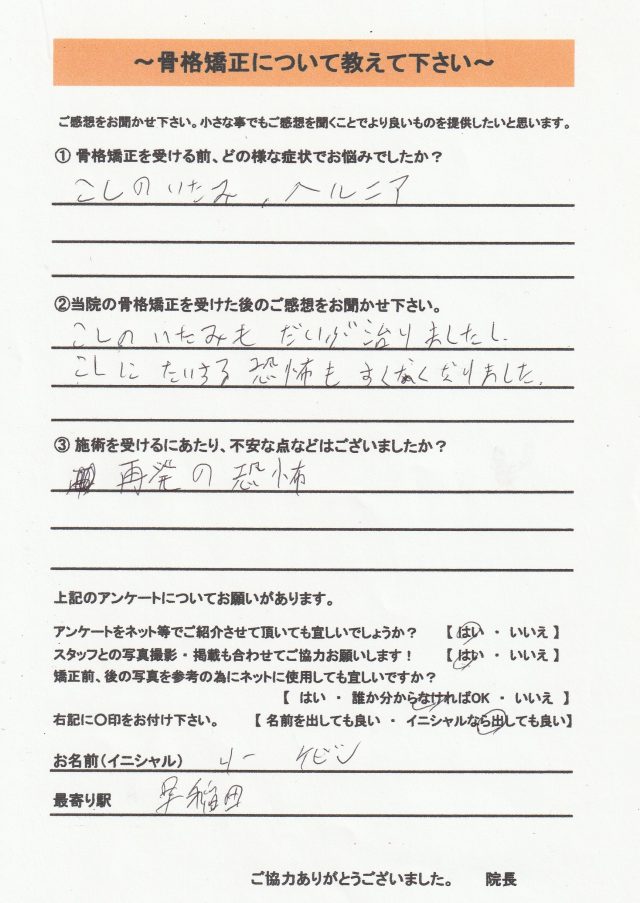 ～骨格矯正について教えて下さい～
ご感想をお聞かせ下さい。小さな事でもご感想を聞くことでより良いものを提供したいと思います。
① 骨格矯正を受ける前、どの様な症状でお悩みでしたか？
こしのいたみ、ヘルニア
②当院の骨格矯正を受けた後のご感想をお聞かせ下さい。
こしのいたみも だいぶ治りましたし、
こしにたいする恐怖も すくなくなりました。
③ 施術を受けるにあたり、不安な点などはございましたか？
再発の恐怖
上記のアンケートについてお願いがあります。
アンケートをネット等でご紹介させて頂いても宜しいでしょうか？ 【 はい ・ いいえ 】
スタッフとの写真撮影・掲載も合わせてご協力お願いします！ 【 はい ・ いいえ 】
矯正前、後の写真を参考の為にネットに使用しても宜しいですか？
【 はい ・ 誰か分からなければOK ・ いいえ 】
右記に〇印をお付け下さい。 【 名前を出しても良い ・ イニシャルなら出しても良い】
お名前(イニシャル) リー ケビン
最寄り駅 早稲田
ご協力ありがとうございました。 院長